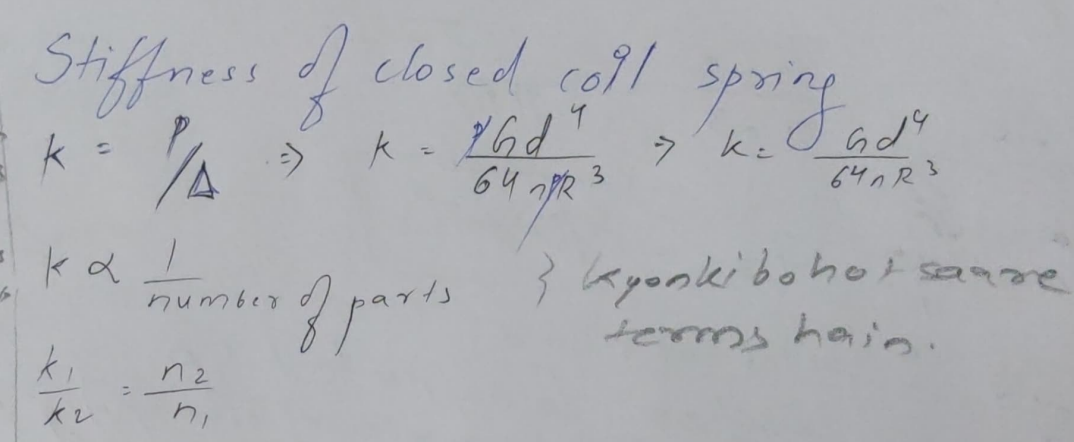 Stiffness of closed coil spring
k = P/Δ => k = PGd⁴/64nPR³ => k = Gd⁴/64nR³
k α 1/number of parts } kyonki bohot saare
terms hain.
k₁/k₂ = n₂/n₁